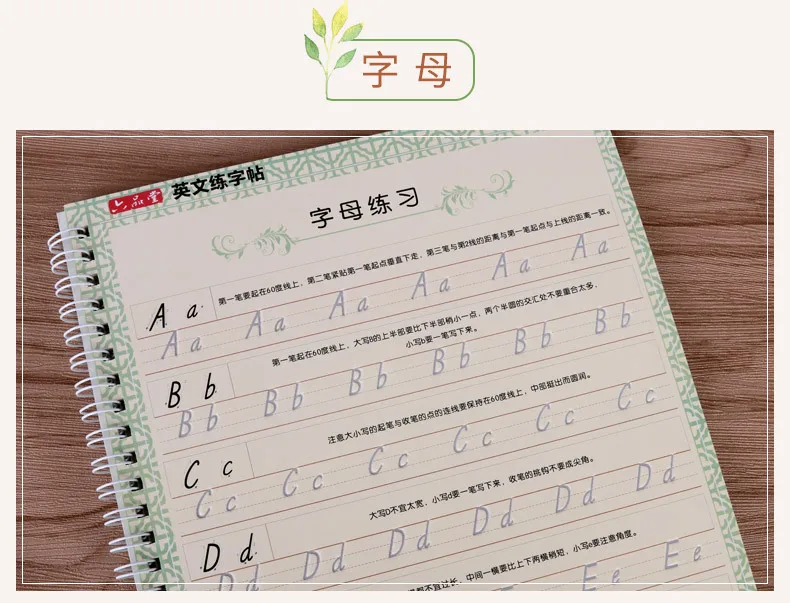 字母
六品堂 英文练字帖
字母练习
第一笔要起在60度线上，第二笔紧贴第一笔起点垂直下走，第三笔与第2线的距离与第一笔起点与上线的距离一致。
A a
A a A a A a A a A a A a
第一笔起在60度线上，大写B的上半部要比下半部稍小一点，两个半圆的交汇处不要重合太多，
小写b要一笔写下来。
B b
B b B b B b B b B b B b
注意大小写的起笔与收笔的点的连线要保持在60度线上，中部挺出而圆润。
C c
C c C c C c C c C c C c
大写D不宜太宽，小写d要一笔写下来，收笔的挑钩不要成尖角。
D d
D d D d D d D d D d D d
都不宜过长，中间一横要比上下两横稍短，小写e要注意角度。
E e E e